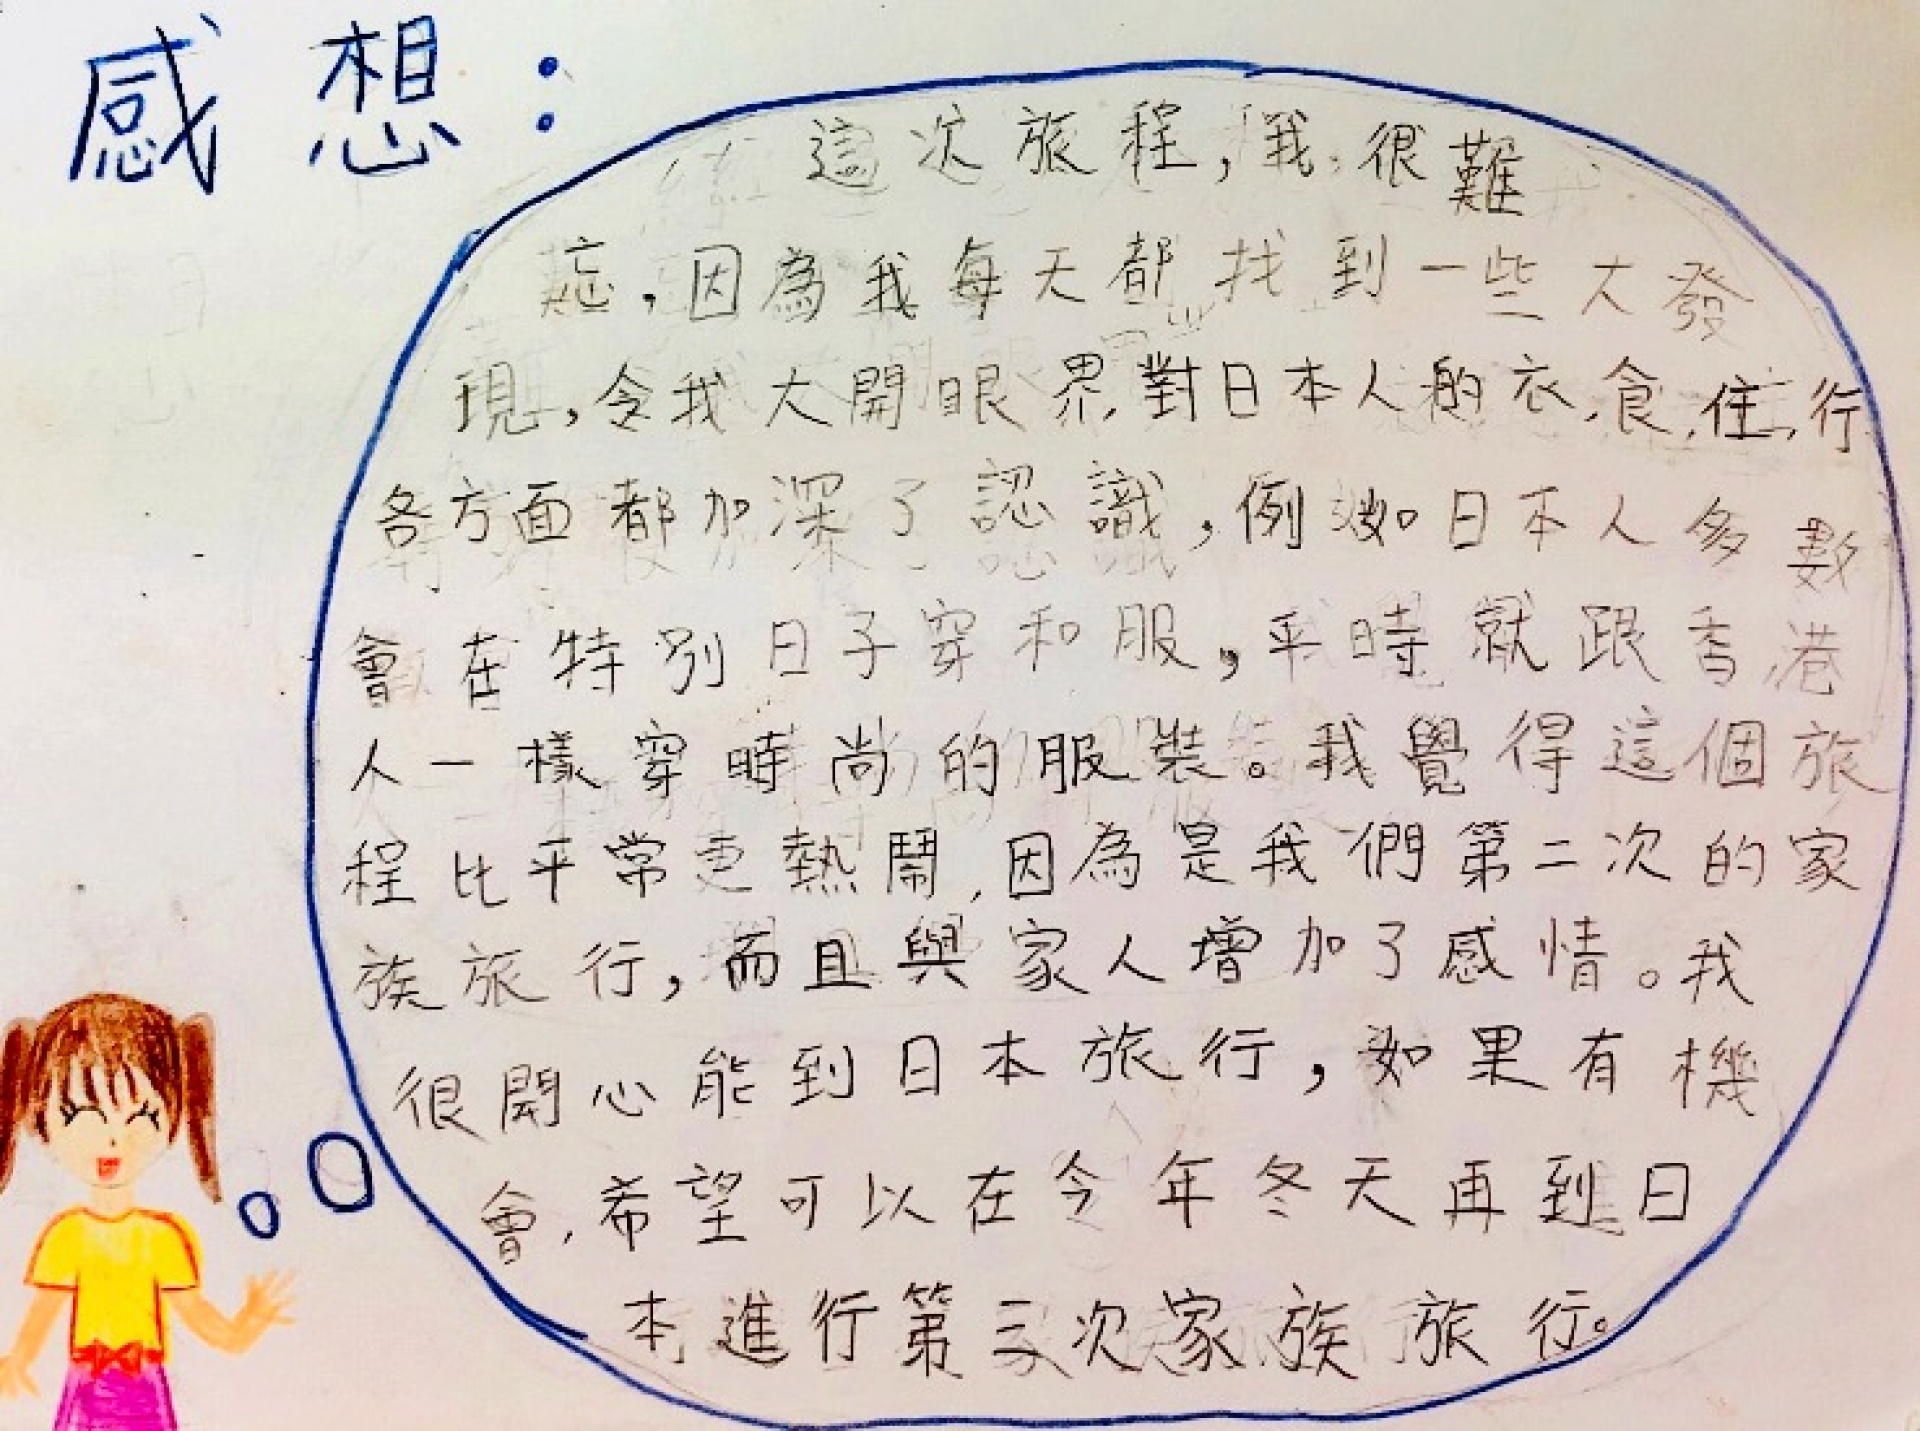 感想：
這次旅程，我很難
忘，因為我每天都找到一些大發
現，令我大開眼界，對日本人的衣，食，住，行
各方面都加深了認識，例如日本人多數
會在特別日子穿和服，平時就跟香港
人一樣穿時尚的服裝。我覺得這個旅
程比平常更熱鬧，因為是我們第二次的家
族旅行，而且與家人增加了感情。我
很開心能到日本旅行，如果有機
會，希望可以在今年冬天再到日
本進行第三次家族旅行。